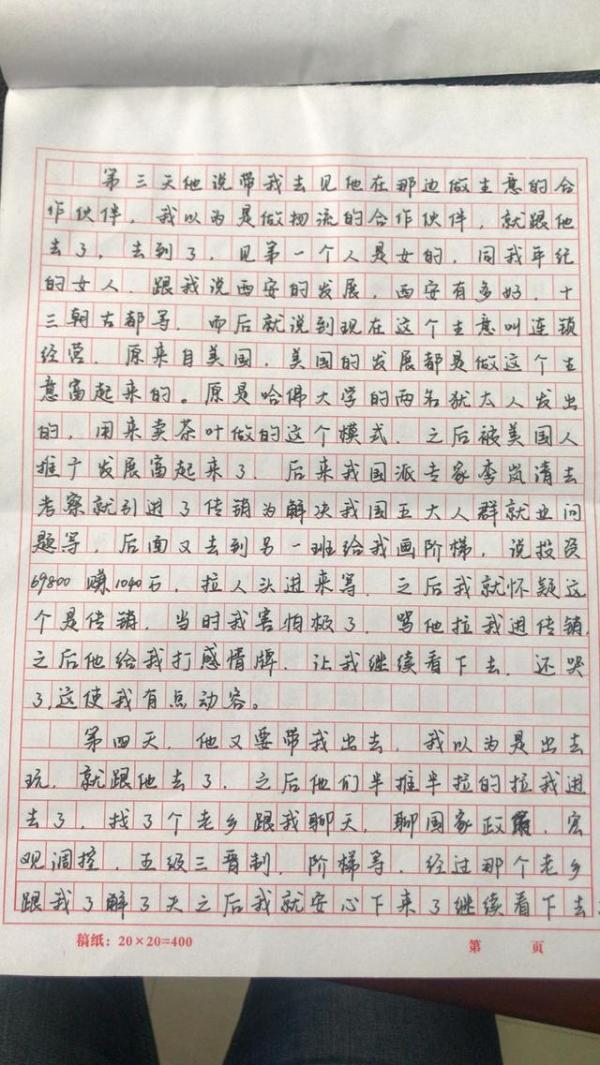 第三天他说带我去见他在那边做生意的合
作伙伴，我以为是做物流的合作伙伴，就跟他
去了，去到了，见第一个人是女的，同我年纪
的女人，跟我说西安的发展，西安有多好，十
三朝古都等，而后就说到现在这个生意叫连锁
经营，原来自美国，美国的发展都是做这个生
意富起来的。原是哈佛大学的两名犹太人发出
的，用来卖茶叶做的这个模式，之后被美国人
推广发展富起来了，后来我国派专家李岚清去
考察就引进了传销为解决我国五大人群就业问
题等，后面又去到另一班给我画阶梯，说投资
69800赚1040万，拉人头进来等，之后我就怀疑这
个是传销，当时我害怕极了，骂他拉我进传销，
之后他给我打感情牌，让我继续看下去，还哭
了，这使我有点动容。
第四天，他又要带我出去，我以为是出去
玩，就跟他去了，之后他们半推半拉的拉我进
去了，找了个老乡跟我聊天，聊国家政，宏
观调控，五级三晋制，阶梯等，经过那个老乡
跟我了解了天之后我就安心下来了继续看下去
稿纸：20×20=400
第 页